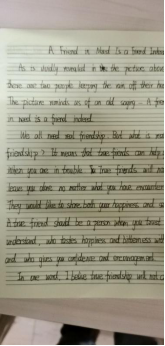 A Friend in Need Is a Friend Indeed
As is vividly revealed in the picture above
there are two people keeping the rain off their he
The picture reminds us of an old saying - A frie
in need is a friend indeed.
We all need real friendship. But what is real
friendship? It means that true friends can help
when you are in trouble. True friends will not
leave you alone no matter what you have encounter
They would like to share both your happiness and
A true friend should be a person whom you trust
understand, who shares happiness and bitterness with
and who gives you confidence and encouragement.
In one word, I believe true friendship will not